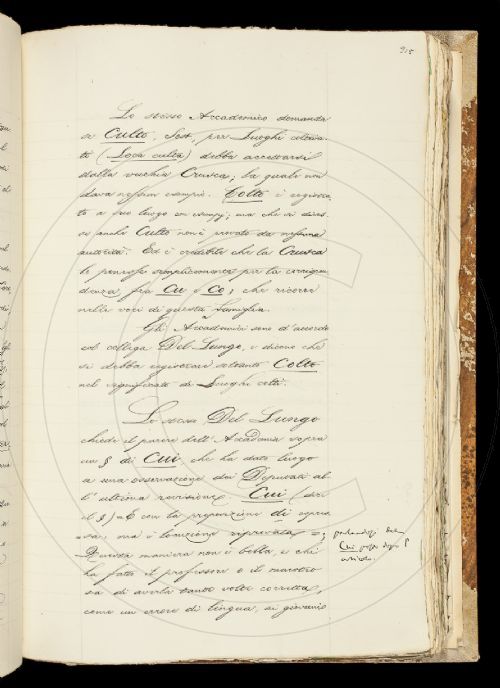 215
Lo stesso Accademico domanda
se Culto, Sost, per Luoghi coltiva-
ti (Loca culta) debba accettarsi
dalla vecchia Crusca, la quale non
dava nessun esempio. Colto è registra-
to a suo luogo con esempj; ma che si dices-
se anche Culto non è provato da nessuna
autorità. Ed è credibile che la Crusca
lo ponesse semplicemente per la corrispon-
denza fra Cu e Co, che ricorre
nelle voci di questa famiglia.
Gli Accademici sono d'accordo
col collega Del Lungo, e dicono che
si debba registrare soltanto Colto
nel significato di Luoghi colti.
Lo stesso Del Lungo
chiede il parere dell'Accademia sopra
un § di Cui che ha dato luogo
a una osservazione dei Deputati al-
l'ultima revisione. Cui (dice
il §) con la preposizione di espres-
sa, ma è locuzione riprovata
Questa maniera non è bella, e chi
ha fatto il professore o il maestro
sa di averla tante volte corretta,
come un errore di lingua, ai giovani
parlandosi del
Cui posto dopo l'
articolo.